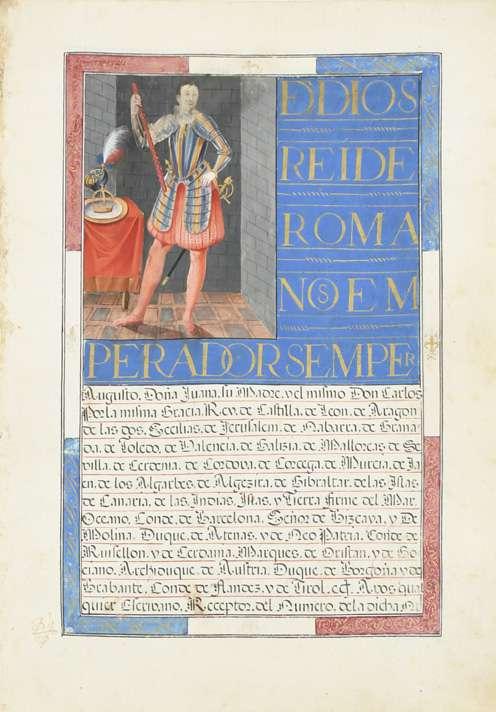 D DIOS
REI DE
ROMA
NOS EM
PERADOR SEMPER
Augusto, Doña Juana, su Madre, y el mismo Don Carlos
Por la misma Gracia, Rey, de Castilla, de Leon, de Aragon
de las dos, Secilias, de Jerusalem, de Nabarra, de Grana
da, de Toledo, de Valencia, de Galizia, de Mallorcas, de Se
villa, de Cerdenia, de Cordova, de Corcega, de Murcia, de Ja
en, de los Algarbes, de Algezira, de Gibraltar, de las Islas
de Canaria, de las Indias, Islas, y Tierra firme del Mar
Oceano, Conde de Barcelona, Señor de Bizcaya, y De
Molina, Duque, de Atenas, y de Neo Patria, Conde de
Ruisellon, y de Cerdania, Marques, de Oristan, y de Go
ciano, Archiduque, de Austria, Duque, de Borgoña y de
Brabante, Conde de Flandez, y de Tirol, ecc. A vos qual
quier Escrivano, Receptor, del Numero, de la dicha